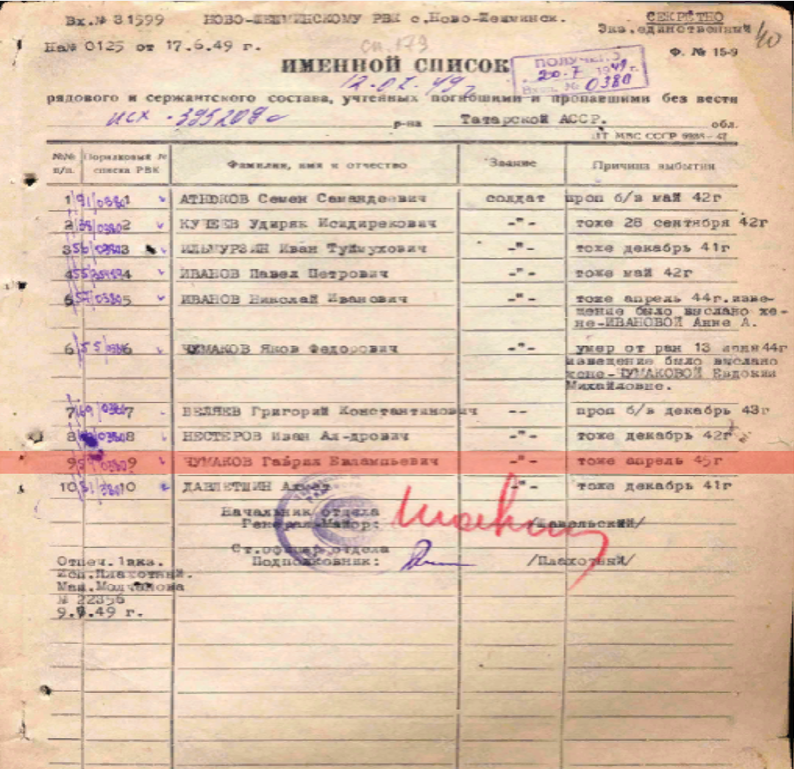 Вх.№ 31599 НОВО-ШЕШМИНСКОМУ РВК с.Ново-Шешминск. СЕКРЕТНО
Экз.единственный 40
На№ 0125 от 17.6.49 г. сп.179 Ф. № 15-9
ИМЕННОЙ СПИСОК
ПОЛУЧЕНО
20.7 1949 г.
Вход. № 0380
12.07.49 г.
рядового и сержантского состава, учтенных погибшими и пропавшими без вести
исх -395209с р-на Татарской АССР. обл.
ПТ МВС СССР
№№ п/п. Порядковый № списка РВК Фамилия, имя и отчество Звание Причина выбытия
1 91/0380 1 АТЮКОВ Семен Самандеевич солдат проп б/в май 42г
2 2 КУЧЕЕВ Удиряк Исидирекович -"- тоже 28 сентября 42г
3 3 ИЛЬМУРЗИН Иван Туймухович -"- тоже декабрь 41г
4 4 ИВАНОВ Павел Петрович -"- тоже май 42г
5 5 ИВАНОВ Николай Иванович -"- тоже апрель 44г.изве-
щение было выслано же-
не-ИВАНОВОЙ Анне А.
6 6 ЧУМАКОВ Яков Федорович -"- умер от ран 13 июня 44г
извещение было выслано
жене-ЧУМАКОВОЙ Евдокии
Михайловне.
7 7 БЕЛЯЕВ Григорий Константинович -- проп б/в декабрь 43г
8 8 НЕСТЕРОВ Иван Ал-дрович -"- тоже декабрь 42г
9 9 ЧУМАКОВ Гаврил Евлампьевич -"- тоже апрель 45г
10 10 ДАВЛЕТШИН Ахмет -"- тоже декабрь 41г
Начальник отдела
Генерал-Майор: /Шавельский/
Ст.офицер отдела
Отпеч.1экз. Подполковник: /Плахотный/
Исп.Плахотный.
Маш.Молчанова
№ 22356
9.7.49 г.